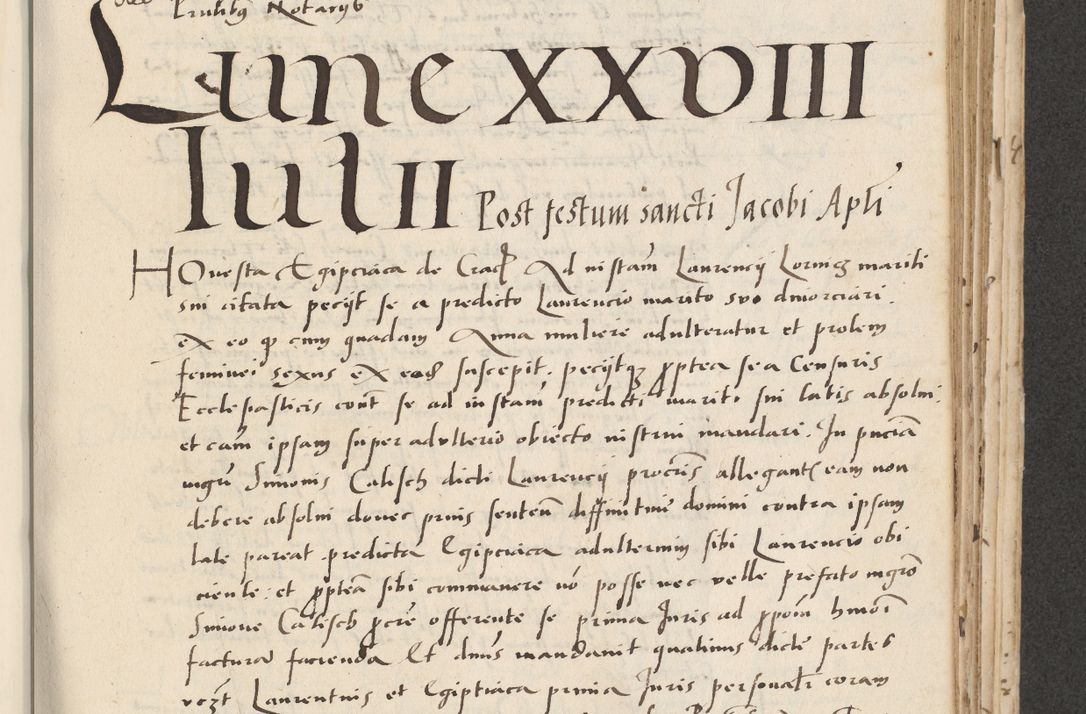 Notarys
Lune XXVIII
Iulii Post festum sancti Jacobi Apli
HOnesta Egipciaca de Crac Ad instam Laurencij Lornig mariti
sui citata peciit se a predicto Laurencio marito suo diuorciari
ex eo q cum quadam Anna muliere adulteratur et prolem
feminei sexus ex eod suscepit. peciitq ppterea se a Censuris
Ecclesiasticis cont se ad instam predicti mariti sui latis absolui,
et cam ipsam super adulterio obiecto instrui mandari. In pncia
mgri Simonis Calisch dicti Laurencij procris allegant eam non
debere absolui donec prius senten diffinitiue domini contra ipsam
late pareat predicta Egipciaca adulterium sibi Laurencio obi
ciente: et pptea sibi commanere no posse nec velle prefato mgro
Simone Calisch pcre offerente se prima Juris ad ppom hmoi
factura facienda Et dnus mandauit quatinus dicte partes
vczt Laurentius et Egiptiaca prima Juris personalr coram